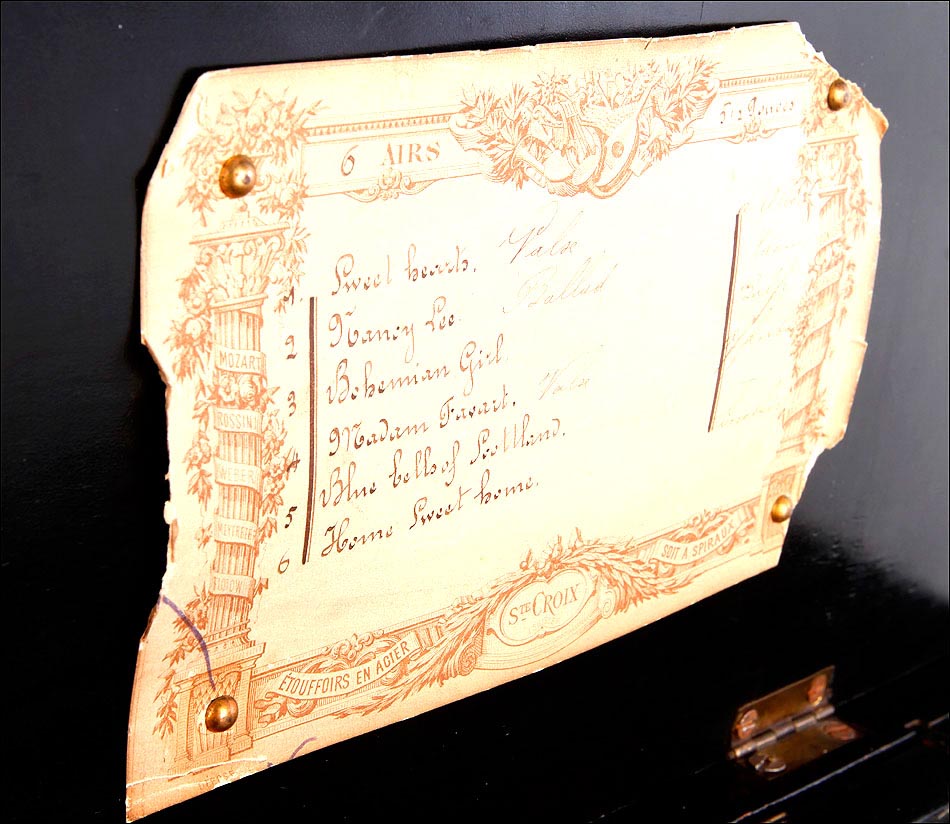 6 AIRS
1. Sweet hearts. Valse
2 Nancy Lee. Ballad
3 Bohemian Girl.
4 Madam Favart. Valse
5 Blue bells of Scottland.
6 Home Sweet home.
MOZART
ROSSINI
WEBER
MEYERBEER
STE CROIX
ÉTOUFFOIRS EN ACIER
SOIT A SPIRAUX